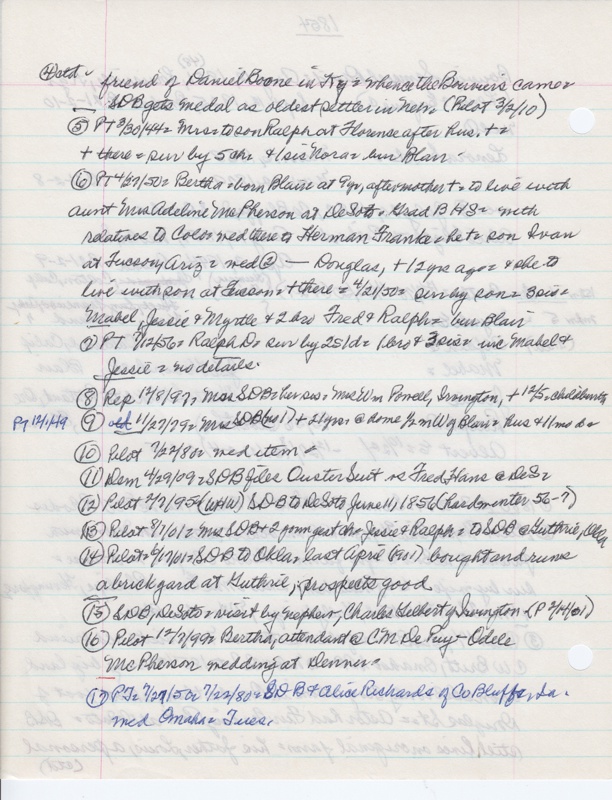 ④ctd - friend of Daniel Boone in Ky = whence the Bouviers came =
SDB gets medal as oldest settler in Neb = (Pilot 3/2/10)
⑤ PT 3/30/44 = Mrs = to son Ralph at Florence after hus. + =
+ there = surv by 5 chr & 1 sis Nora = bur Blair
⑥ PT 4/27/50 = Bertha = born Blair at 9 yr, after mother + = to live with
aunt Mrs Adeline McPherson at DeSoto = Grad BHS = with
relatives to Color wed there to Herman Franke = he + = son Ivan
at Tucson, Ariz = wed ② — Douglas, + 12 yrs ago = & she to
live with son at Tucson = + there = 4/21/50 = surv by son = 3 sis =
Mabel, Jessie & Myrtle & 2 bro Fred & Ralph = bur Blair
⑦ PT 7/12/56 = Ralph D = surv by 2s 1d = 1 bro & 3 sis = inc Mabel &
Jessie = no details.
⑧ Rep 12/8/97 = Mrs SDB = her sis = Mrs Wm Powell, Irvington, + 12/5 = childbirth
PT 12/1/49 ⑨ 11/27/79 = Mrs SDB (no 1) + 21 yrs @ home 1/2 m W of Blair = hus & 11 mo da =
⑩ Pilot 7/22/80 = wed item =
⑪ Dem 4/29/09 = SDB files Ouster Suit vs Fred Hans @ DeS =
⑫ Pilot 2/7/95 = (WHW) SDB to DeSoto June 11, 1856 (hard winter 56-7)
⑬ Pilot 8/1/01 = Mrs SDB & 2 youngest chr Jessie & Ralph = to SDB @ Guthrie, Okla
⑭ Pilot = 9/17/01 = SDB to Okla, last April (1901) bought and runs
a brick yard at Guthrie; prospects good
⑮ SDB, DeSoto = visit by nephew, Charles Gilbert of Irvington (P 2/14/01)
⑯ Pilot 12/7/99 = Bertha, attendant @ C M De Puy - Odele
McPherson wedding at Denver =
⑰ PT = 7/27/50 = 7/22/80 = SDB & Alice Richards of Co Bluffs, Ia.
wed Omaha = Tues.